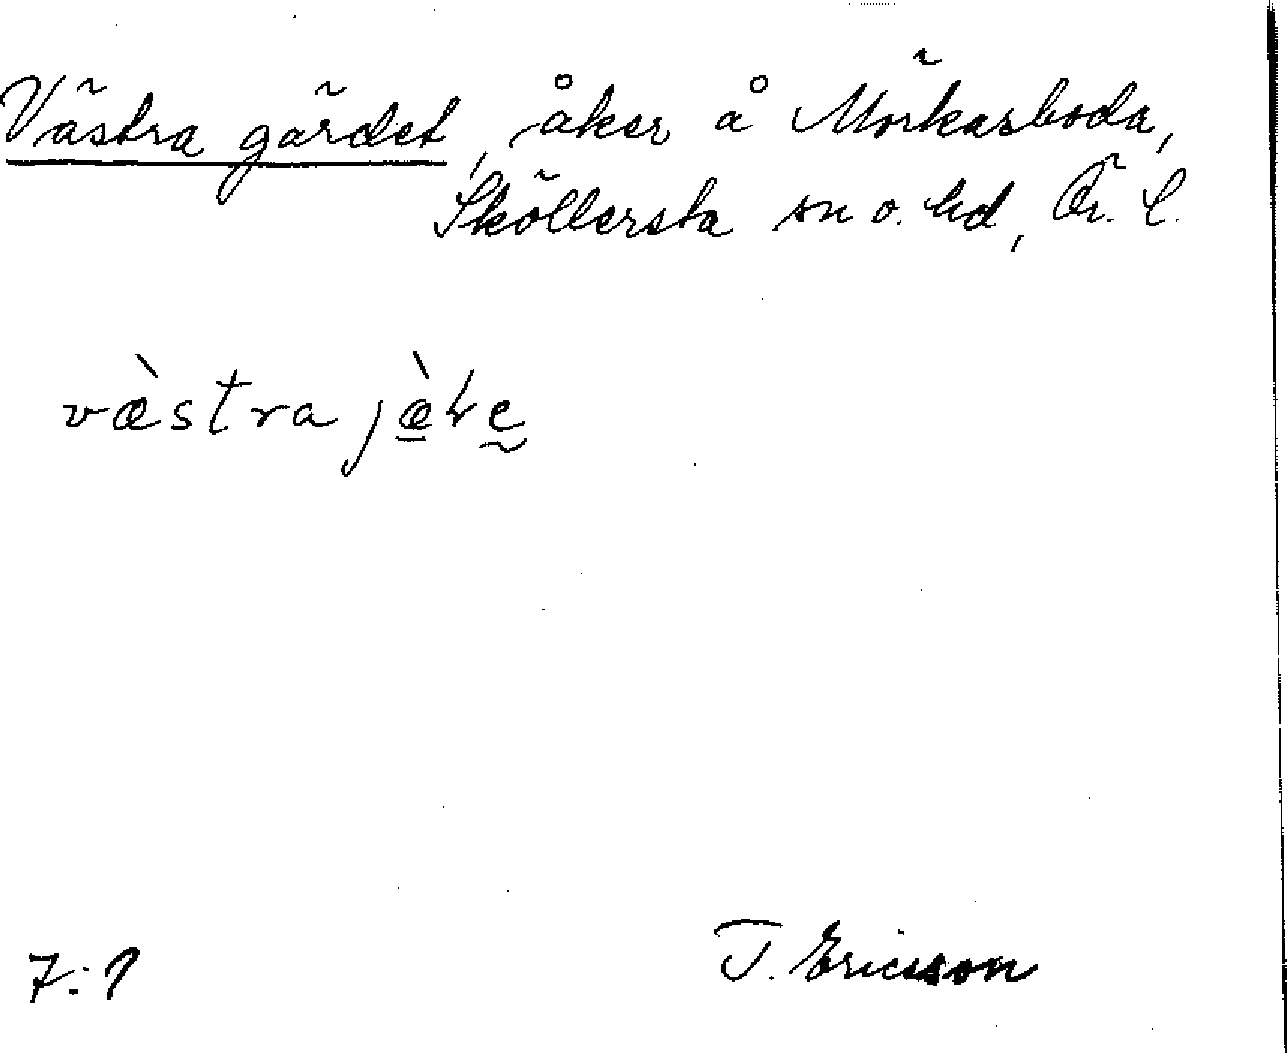 Västra gärdet, åker å Mörkasboda,
Sköllersta sn o. hd, Ör. l.
væ̀stra jæ̀ɫe
7:1
T. Ericsson